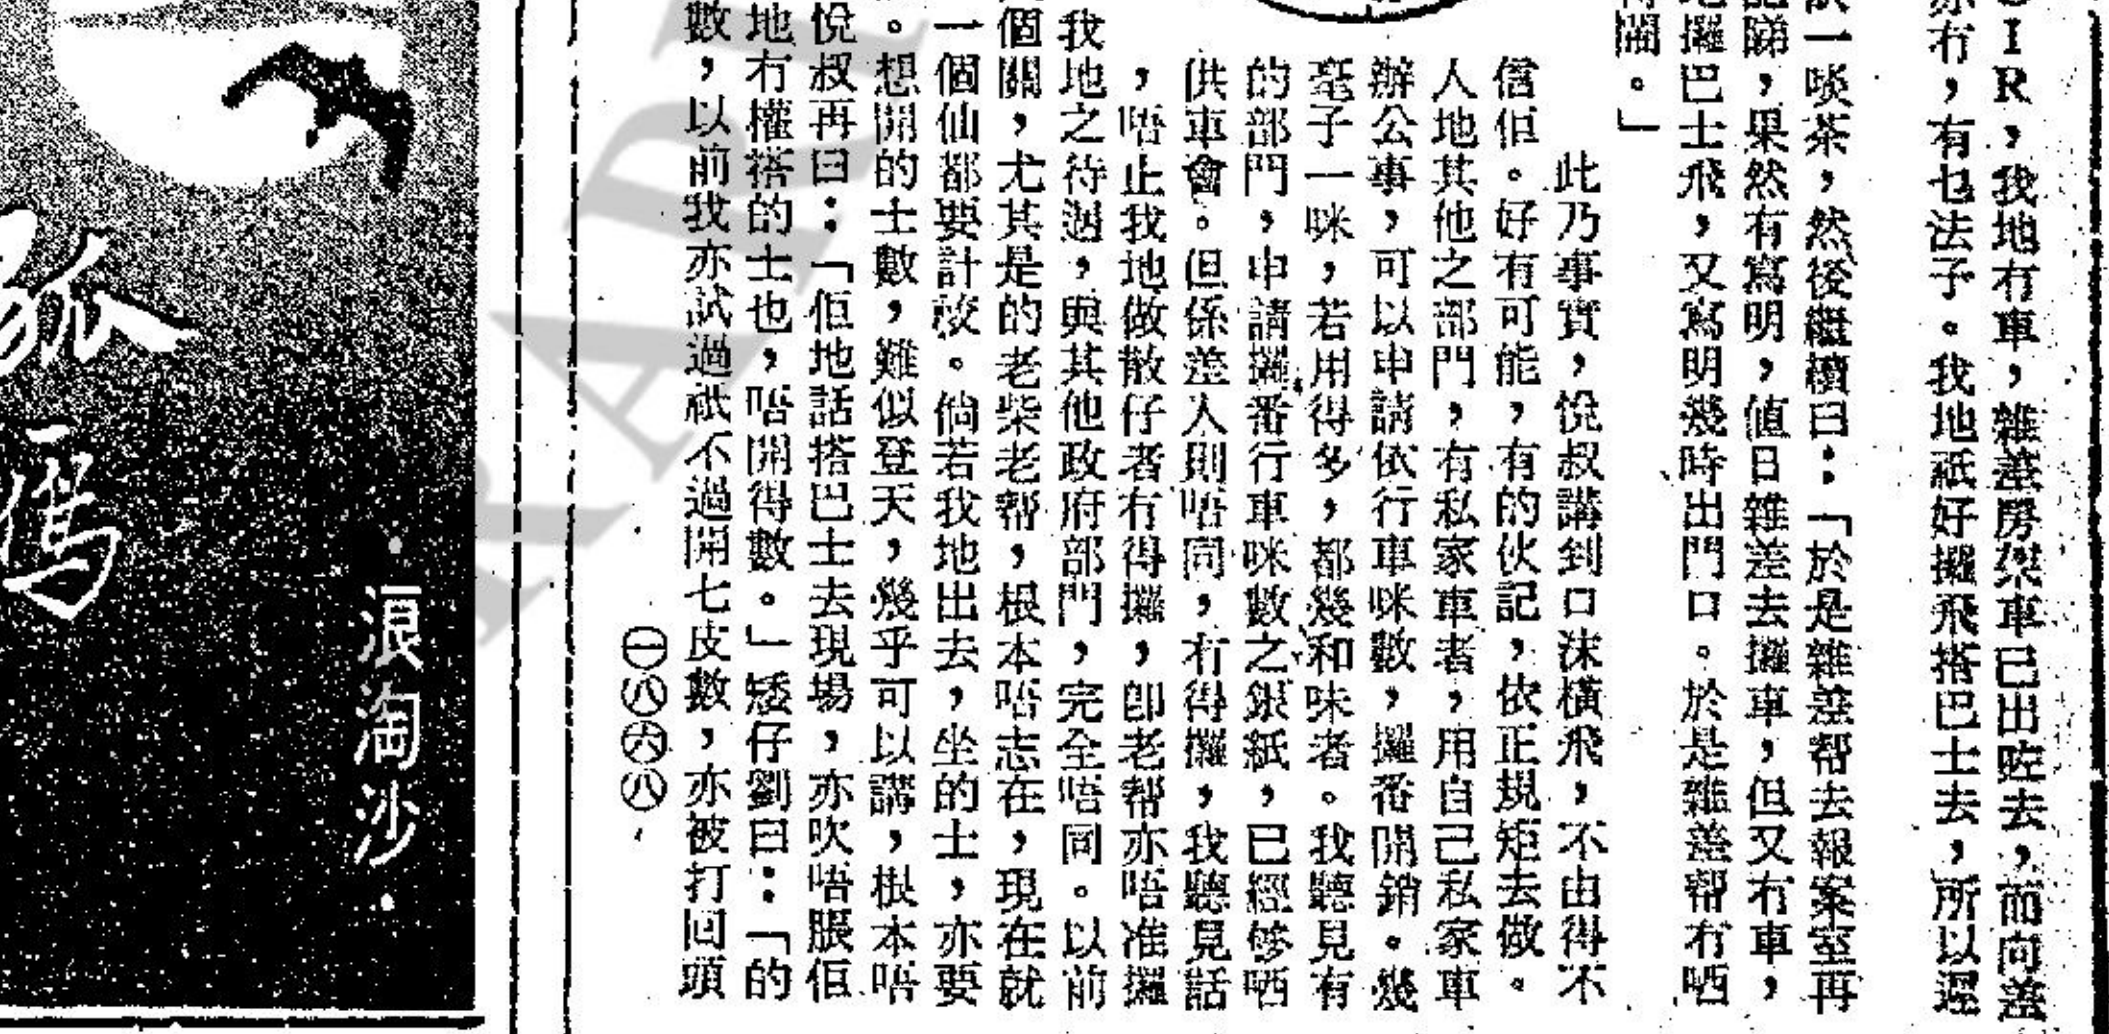 SIR，我地冇車，雜差房架車已出咗去，而向差
亦冇，有乜法子。我地祇好攞飛搭巴士去，所以遲
一啖茶，然後繼續曰：「於是雜差帮去報案室再
睇，果然有寫明，值日雜差去攞車，但又冇車，
地攞巴士飛，又寫明幾時出門口。於是雜差帮冇晒
得鬧。」
此乃事實，悅叔講到口沫橫飛，不由得不
信佢。好有可能，有的伙記，依正規矩去做。
人地其他之部門，有私家車者，用自己私家車
辦公事，可以申請依行車咪數，攞番開銷。幾
毫子一咪，若用得多，都幾和味者。我聽見有
的部門，申請攞番行車咪數之銀紙，已經够晒
供車會。但係差人則唔同，冇得攞，我聽見話
，唔止我地做散仔者冇得攞，即老帮亦唔准攞
我地之待遇，與其他政府部門，完全唔同。以前
個關，尤其是的老柴老帮，根本唔志在，現在就
一個仙都要計較。倘若我地出去，坐的士，亦要
。想開的士數，難似登天，幾乎可以講，根本唔
悅叔再曰：「佢地話搭巴士去現場，亦吹唔脹佢
地冇權搭的士也，唔開得數。」矮仔劉曰：「的
數，以前我亦試過祇不過開七皮數，亦被打回頭
㊀㊇㊅㊇
孤
雁
·浪淘沙·